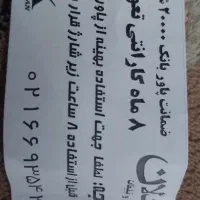 ضمانت پاور بانک ۲۰۰۰۰
۸ ماه گارانتی
لطفا جهت استفاده بهینه از پاور
قبل از استفاده ۸ ساعت زیر شارژ قرار
۰۲۱۶۶۹۳۵۴